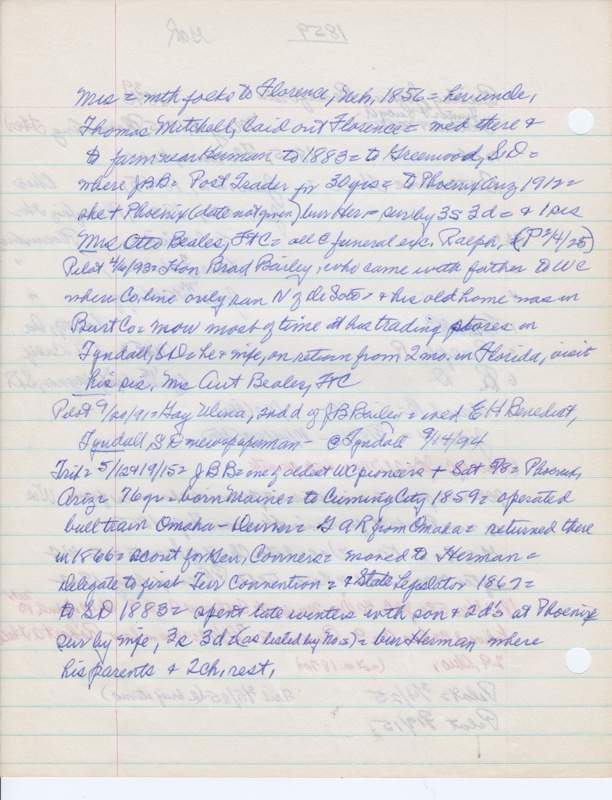 Mrs = with folks to Florence, Neb, 1856 = her uncle,
Thomas Mitchell, laid out Florence = med there &
to farm near Herman to 1883 = to Greenwood, S.D. =
where JBB = Post Trader for 30 yrs = to Phoenix Ariz 1912 =
she + Phoenix (date not given) bur Her. = sur by 3S 3d = & 1 sis
Mrs Otto Beales, Ft C = all @ funeral exc. Ralph, (P 2/4/25)
Pilot 4/6/93 = Hon Brad Bailey, who came with father to WC
when Co. line only ran N of De Soto, & his old home was in
Burt Co = now most of time at his trading stores in
Tyndall, S.D = he & wife, on return from 2 mo. in Florida, visit
his sis, Mrs Aut Beales, Ft C
Pilot = Gay Ulina, 2nd d of JB Bailey = med E H Benedict,
Tyndall, SD newspaperman - @ Tyndall 9/14/94
Trib = JBB = one of oldest WC pioneers + Sat = Phoenix,
Ariz = 76 yr = born Maine = to Cuming City 1859 = operated
bull train Omaha - Denver = G A R from Omaha = returned there
in 1866 = scout for Gen, Connors = moved to Herman =
delegate to first Terr Convention = & State Legislator 1867 =
to SD 1883 = spent late winters with son & 2d's at Phoenix
sur by wife, 3s 3d (as listed by Mrs) = bur Herman where
his parents & 2 ch, rest,